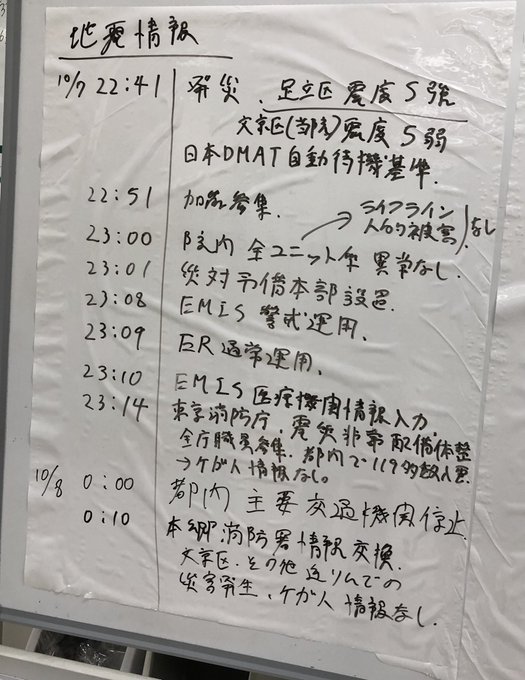 地震情報
10/7 22:41 発災、足立区 震度5強
文京区(当院)震度5弱
日本DMAT自動待機基準.
22:51 加藤参集.
ライフライン
人的被害 なし
23:00 院内 全ユニット 異常なし.
23:01 災対予備本部設置.
23:08 EMIS 警戒運用.
23:09 ER通常運用.
23:10 EMIS 医療機関情報入力.
23:14 東京消防庁.震災非常配備体整
全庁職員参集.都内で119多数入電
→ケガ人情報なし。
10/8 0:00 都内 主要交通機関停止.
0:10 本郷消防署情報交換.
文京区.その他近りんでの
災害発生、ケガ人情報なし.